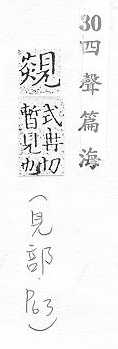 30四聲篇海
覢
式冉切
暫見也
（見部P63）